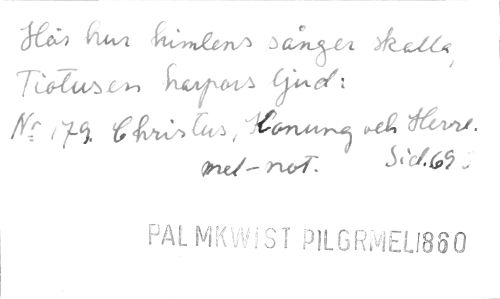 Hör hur himlens sånger skalla,
Tiotusen harpors ljud:
Nr 179. Christus, Konung och Herre.
mel-not. Sid. 69
PALMKWIST PILGRMEL1860